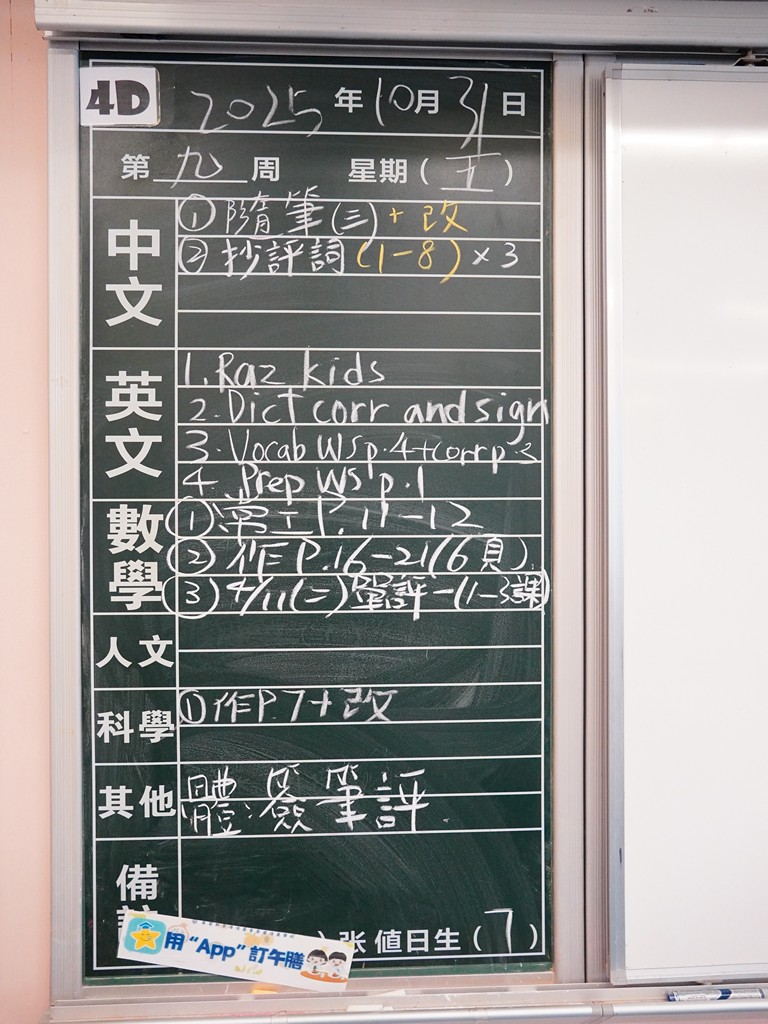 4D
2025年10月31日
第九周 星期(五)
中文
①隨筆(三)+改
②抄評詞(1-8)×3
英文
1. Raz kids
2. Dict corr and sign
3. Vocab WS p.4+corr p.3
4. Prep WS p.1
數學
①常工P.11-12
②作P.16-21(6頁)
③4/11(二)單評一(1-3課)
人文
科學
①作P.7+改
其他
體:簽筆評
備
張 值日生(7)
用“App”訂午膳